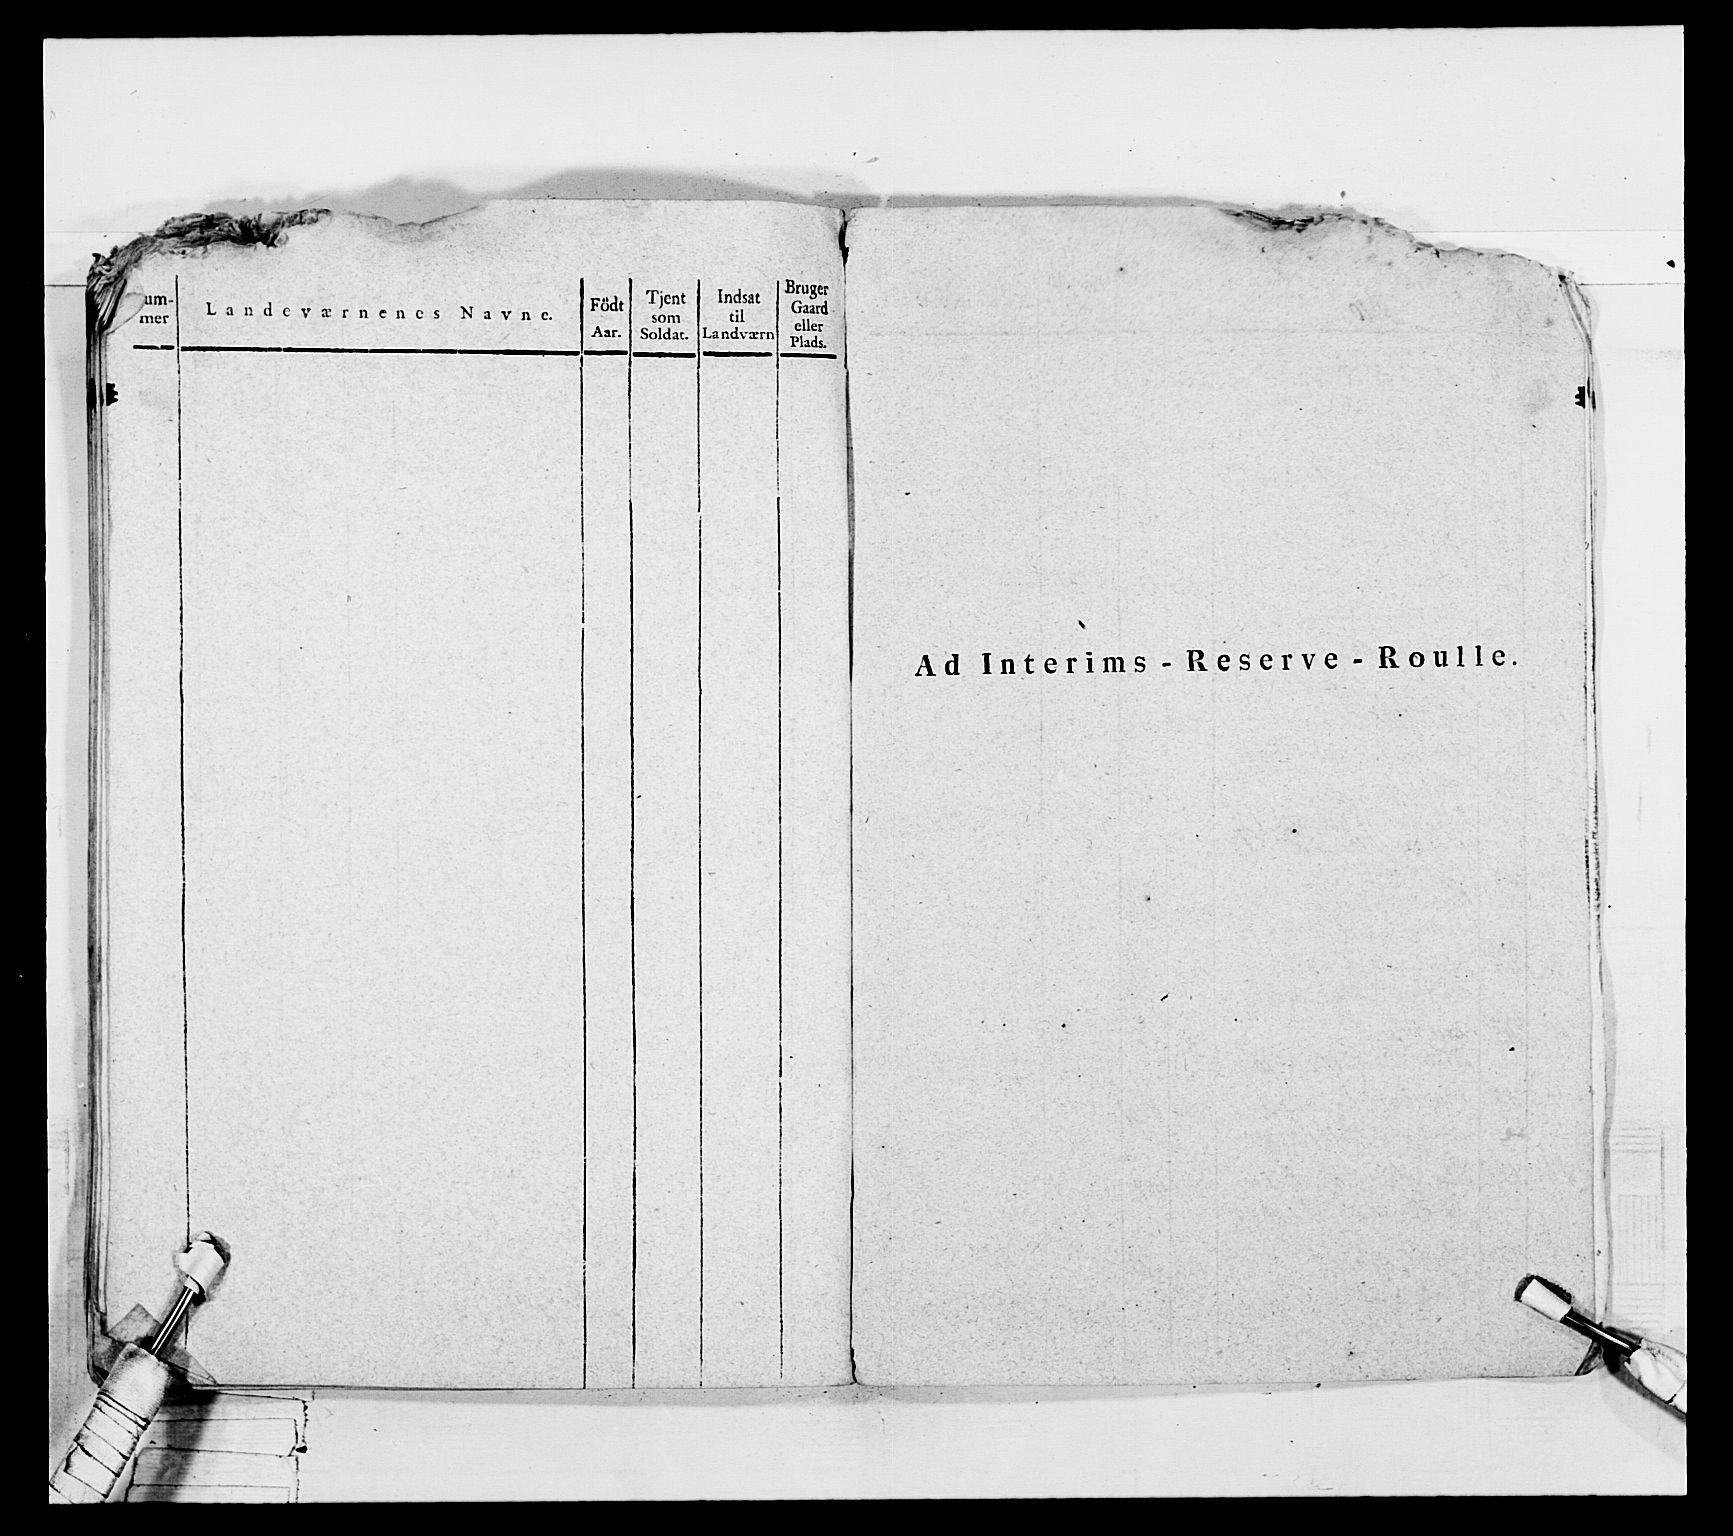 um-
mer
Landeværnenes Navne.
Födt
Aar.
Tjent
som
Soldat.
Indsat
til
Landværn
Bruger
Gaard
eller
Plads.
Ad Interims - Reserve - Roulle.